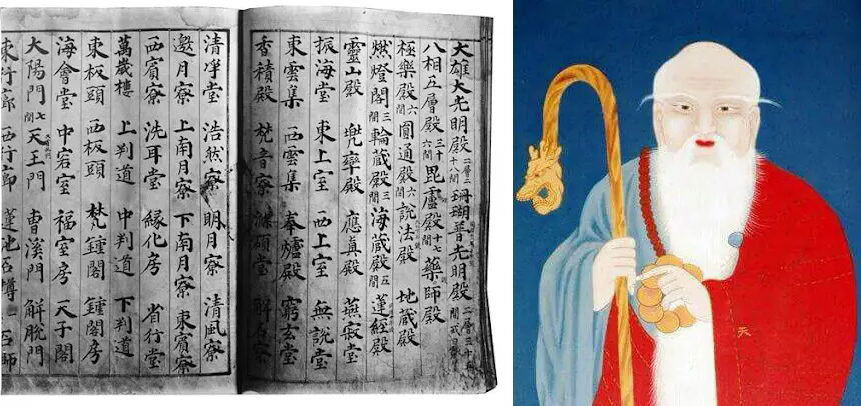 大雄大光明殿 二層二十八間 珊瑚普光明殿 二層三十
八相五層殿 三十六間 毘盧殿 十七間 藥師殿
極樂殿 六間 圓通殿 六間 說法殿 地藏殿
燃燈閣 三間 輪藏殿 三間 海藏殿 五間 蓮經殿
靈山殿 兜率殿 應真殿 燕寂堂
振海堂 東上室 西上室 無說堂
東雲集 西雲集 奉爐殿 窮玄堂
香積殿 梵音寮
清淨堂 浩然寮 明月寮 清風寮
邀月寮 上南月寮 下南月寮 東賓寮
西賓寮 洗耳堂 緣化房 省行堂
萬歲樓 上判道 中判道 下判道
東板頭 西板頭 梵鍾閣 鍾閣房
海會堂 中宕室 福室房 天子閣
大陽門 七間 天王門 曹溪門 解脫門
東行廊 西行廊 蓮池石
天